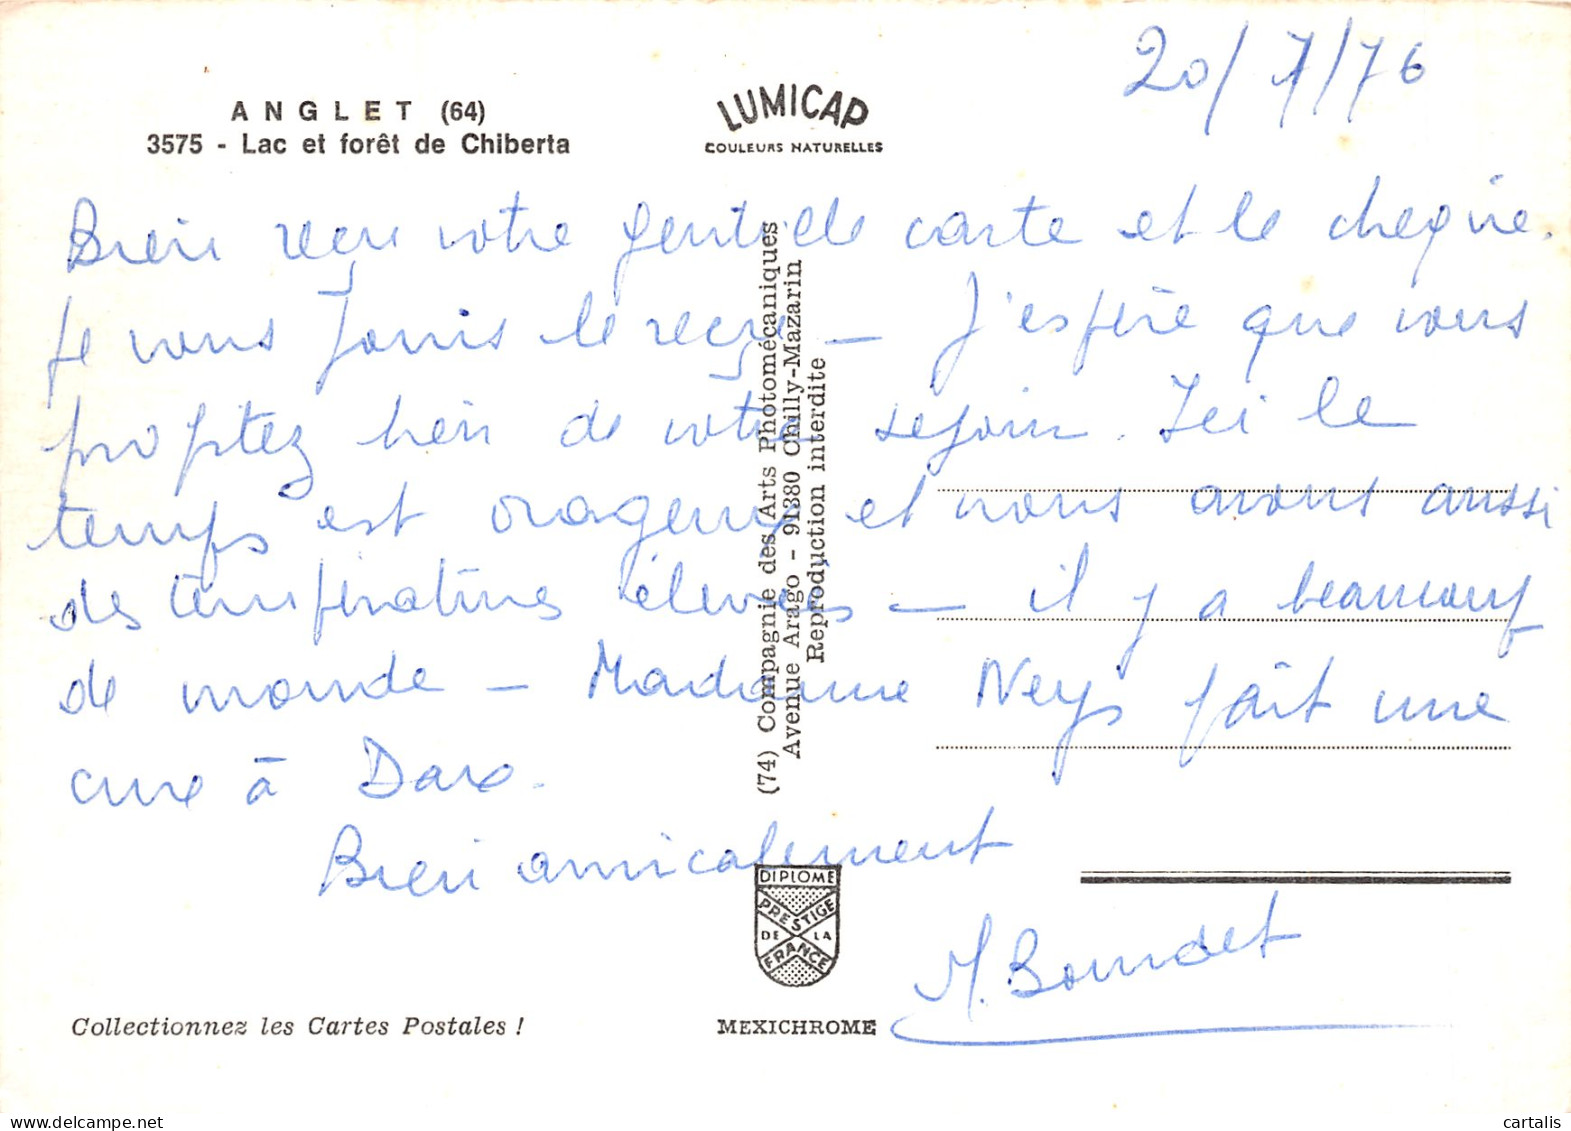 20/7/76
ANGLET (64)
3575 - Lac et forêt de Chiberta
LUMICAP
COULEURS NATURELLES
Bien reçu votre gentille carte et le chèque.
Je vous joins le reçu — J'espère que vous
profitez bien de votre séjour. Ici le
temps est orageux et nous avons aussi
des températures élevées — il y a beaucoup
de monde — Madame Neys fait une
cure à Dax.
Bien amicalement
M. Bourdet
(74) Compagnie des Arts Photomécaniques
Avenue Arago - 91380 Chilly-Mazarin
Reproduction interdite
DIPLOME
PRESTIGE
DE LA
FRANCE
Collectionnez les Cartes Postales !
MEXICHROME
cartalis